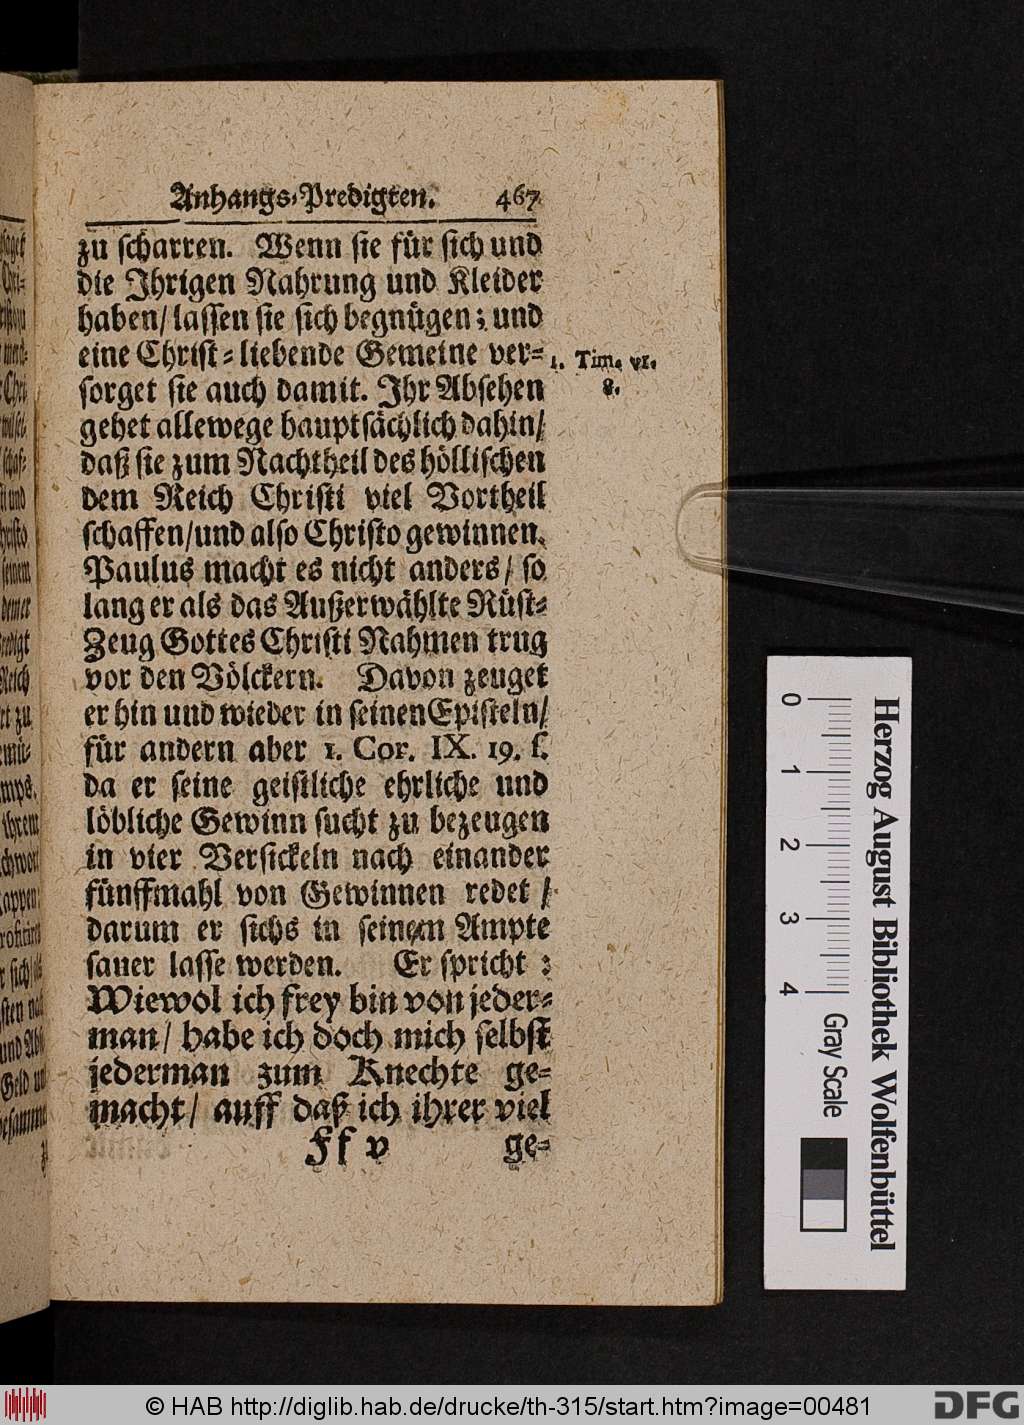 Anhangs-Predigten. 467
zu scharren. Wenn sie für sich und
die Ihrigen Nahrung und Kleider
haben/ lassen sie sich begnügen; und
eine Christ-liebende Gemeine ver-
1. Tim. VI.
8.
sorget sie auch damit. Ihr Absehen
gehet allewege hauptsächlich dahin/
daß sie zum Nachtheil des höllischen
dem Reich Christi viel Vortheil
schaffen/ und also Christo gewinnen.
Paulus macht es nicht anders/ so
lang er als das Außerwählte Rüst-
Zeug Gottes Christi Nahmen trug
vor den Völckern. Davon zeuget
er hin und wieder in seinen Episteln/
für andern aber 1. Cor. IX. 19. f.
da er seine geistliche ehrliche und
löbliche Gewinn sucht zu bezeugen
in vier Versickeln nach einander
fünffmahl von Gewinnen redet /
darum er sichs in seinem Ampte
sauer lasse werden. Er spricht :
Wiewol ich frey bin von jeder-
man/ habe ich doch mich selbst
jederman zum Knechte ge-
macht/ auff daß ich ihrer viel
Ff v ge-
Herzog August Bibliothek Wolfenbüttel
0 1 2 3 4 Gray Scale
© HAB http://diglib.hab.de/drucke/th-315/start.htm?image=00481
DFG